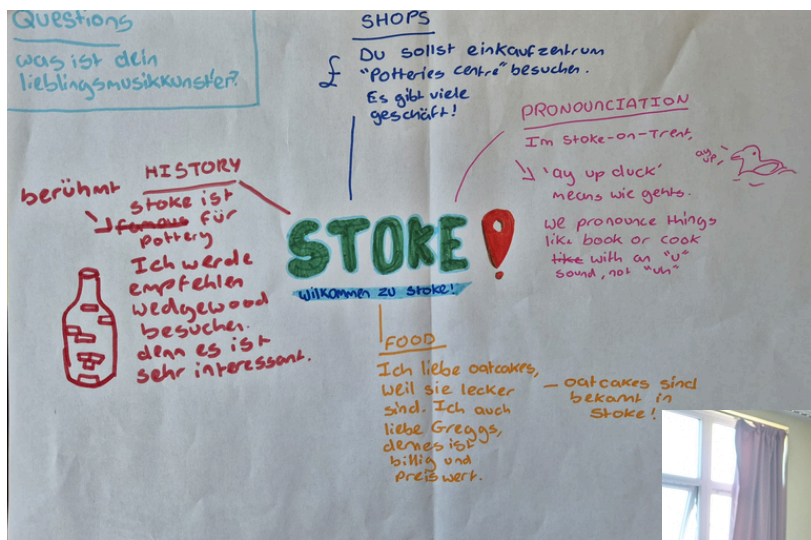 Questions
was ist dein
lieblingsmusikkunster?
SHOPS
£
Du sollst einkaufzentrum
"Potteries centre" besuchen.
Es gibt viele
geschäft!
PRONOUNCIATION
Im Stoke-on-Trent,
'ay up duck'
means wie gehts.
we pronounce things
like book or cook
like with an "u"
sound, not "uh"
ay
up
HISTORY
berühmt
stoke ist
famous für
pottery
Ich werde
empfehlen
wedgewood
besuchen.
denn es ist
sehr interessant.
STOKE!
wilkommen zu stoke!
FOOD
Ich liebe oatcakes,
weil sie lecker
sind. Ich auch
liebe Greggs,
denn es ist
billig und
Preiswert.
- oatcakes sind
bekamt in
Stoke!